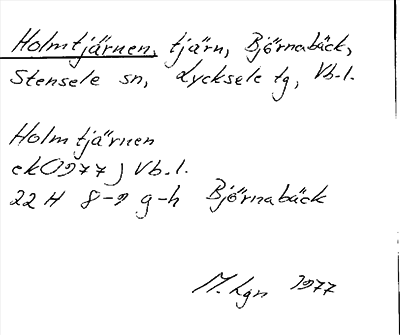 Holmtjärnen, tjärn, Björnabäck,
Stensele sn, Lycksele tg, Vb.l.
Holmtjärnen
ek (1977) Vb.l.
22 H 8-9 g-h Björnabäck
M. Lgn 1977